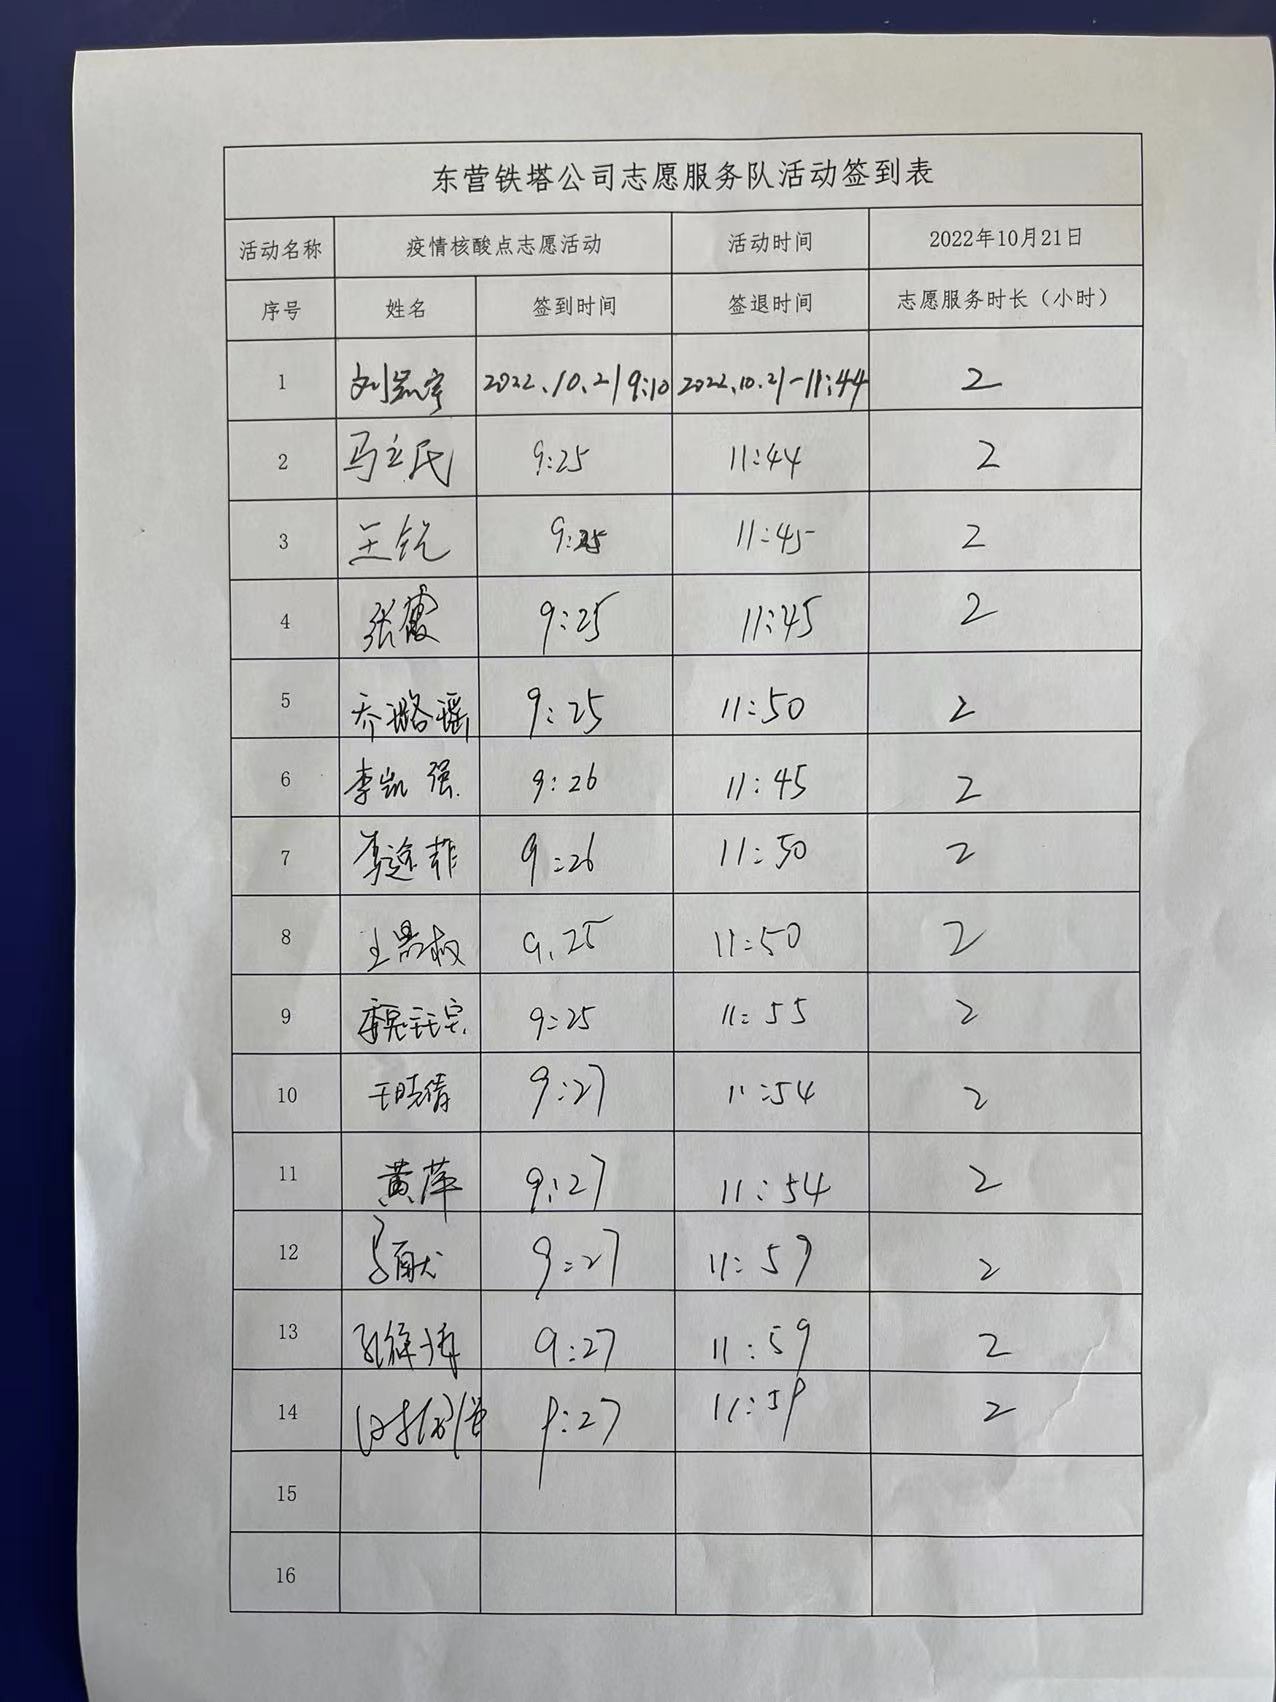 东营铁塔公司志愿服务队活动签到表
活动名称 疫情核酸点志愿活动 活动时间 2022年10月21日
序号 姓名 签到时间 签退时间 志愿服务时长（小时）
1 2022.10.21 9:10 2022.10.21-11:44 2
2 马立民 9:25 11:44 2
3 王锐 9:25 11:45 2
4 张霞 9:25 11:45 2
5 乔璐瑶 9:25 11:50 2
6 李凯强 9:26 11:45 2
7 9:26 11:50 2
8 9.25 11:50 2
9 9:25 11:55 2
10 王晓倩 9:27 11:54 2
11 黄萍 9:27 11:54 2
12 9:27 11:59 2
13 9:27 11:59 2
14 9:27 11:59 2
15
16